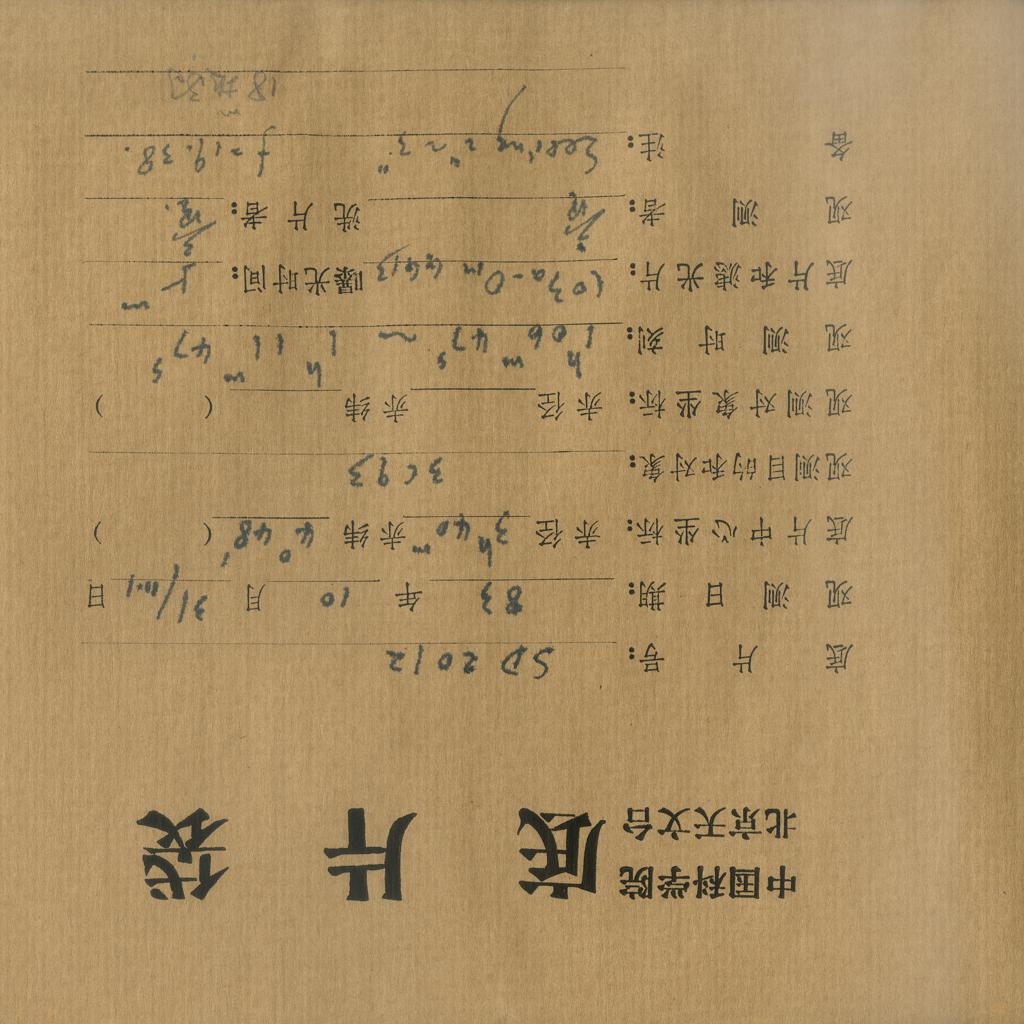 中国科学院
北京天文台
底片袋
底片号: SD 2012
观测日期: 83 年 10 月 31/ 日
底片中心坐标: 赤径 3h40m 赤纬 4°48′ ( )
观测目的和对象: 3C93
观测对象坐标: 赤径 赤纬 ( )
观测时刻: 1h06m47s ~ 1h11m47s
底片和滤光片: 103a-O 曝光时间: 5m
观测者: 洗片者:
备注: Seeing 2″~3″ f=19.38.
18m